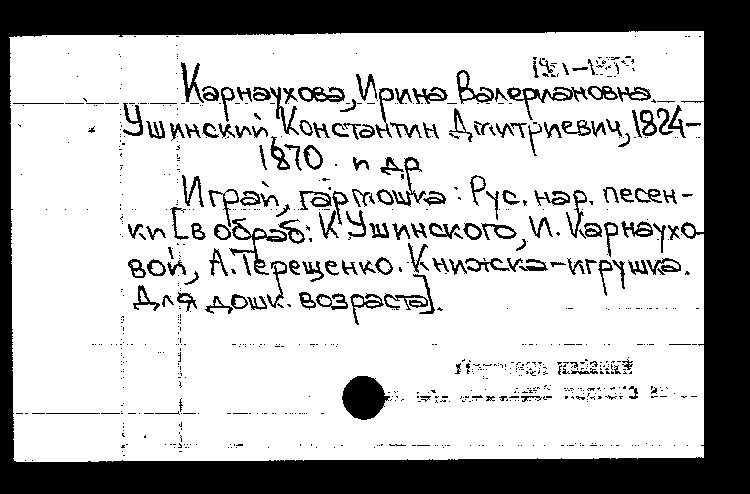 Карнаухова, Ирина Валериановна.
Ушинский, Константин Дмитриевич, 1824-
1870 и др
Играй, гармошка: Рус. нар. песен-
ки [в обраб: К. Ушинского, И. Карнаухо-
вой, А. Терещенко. Книжка-игрушка.
Для дошк. возраста].
изданий